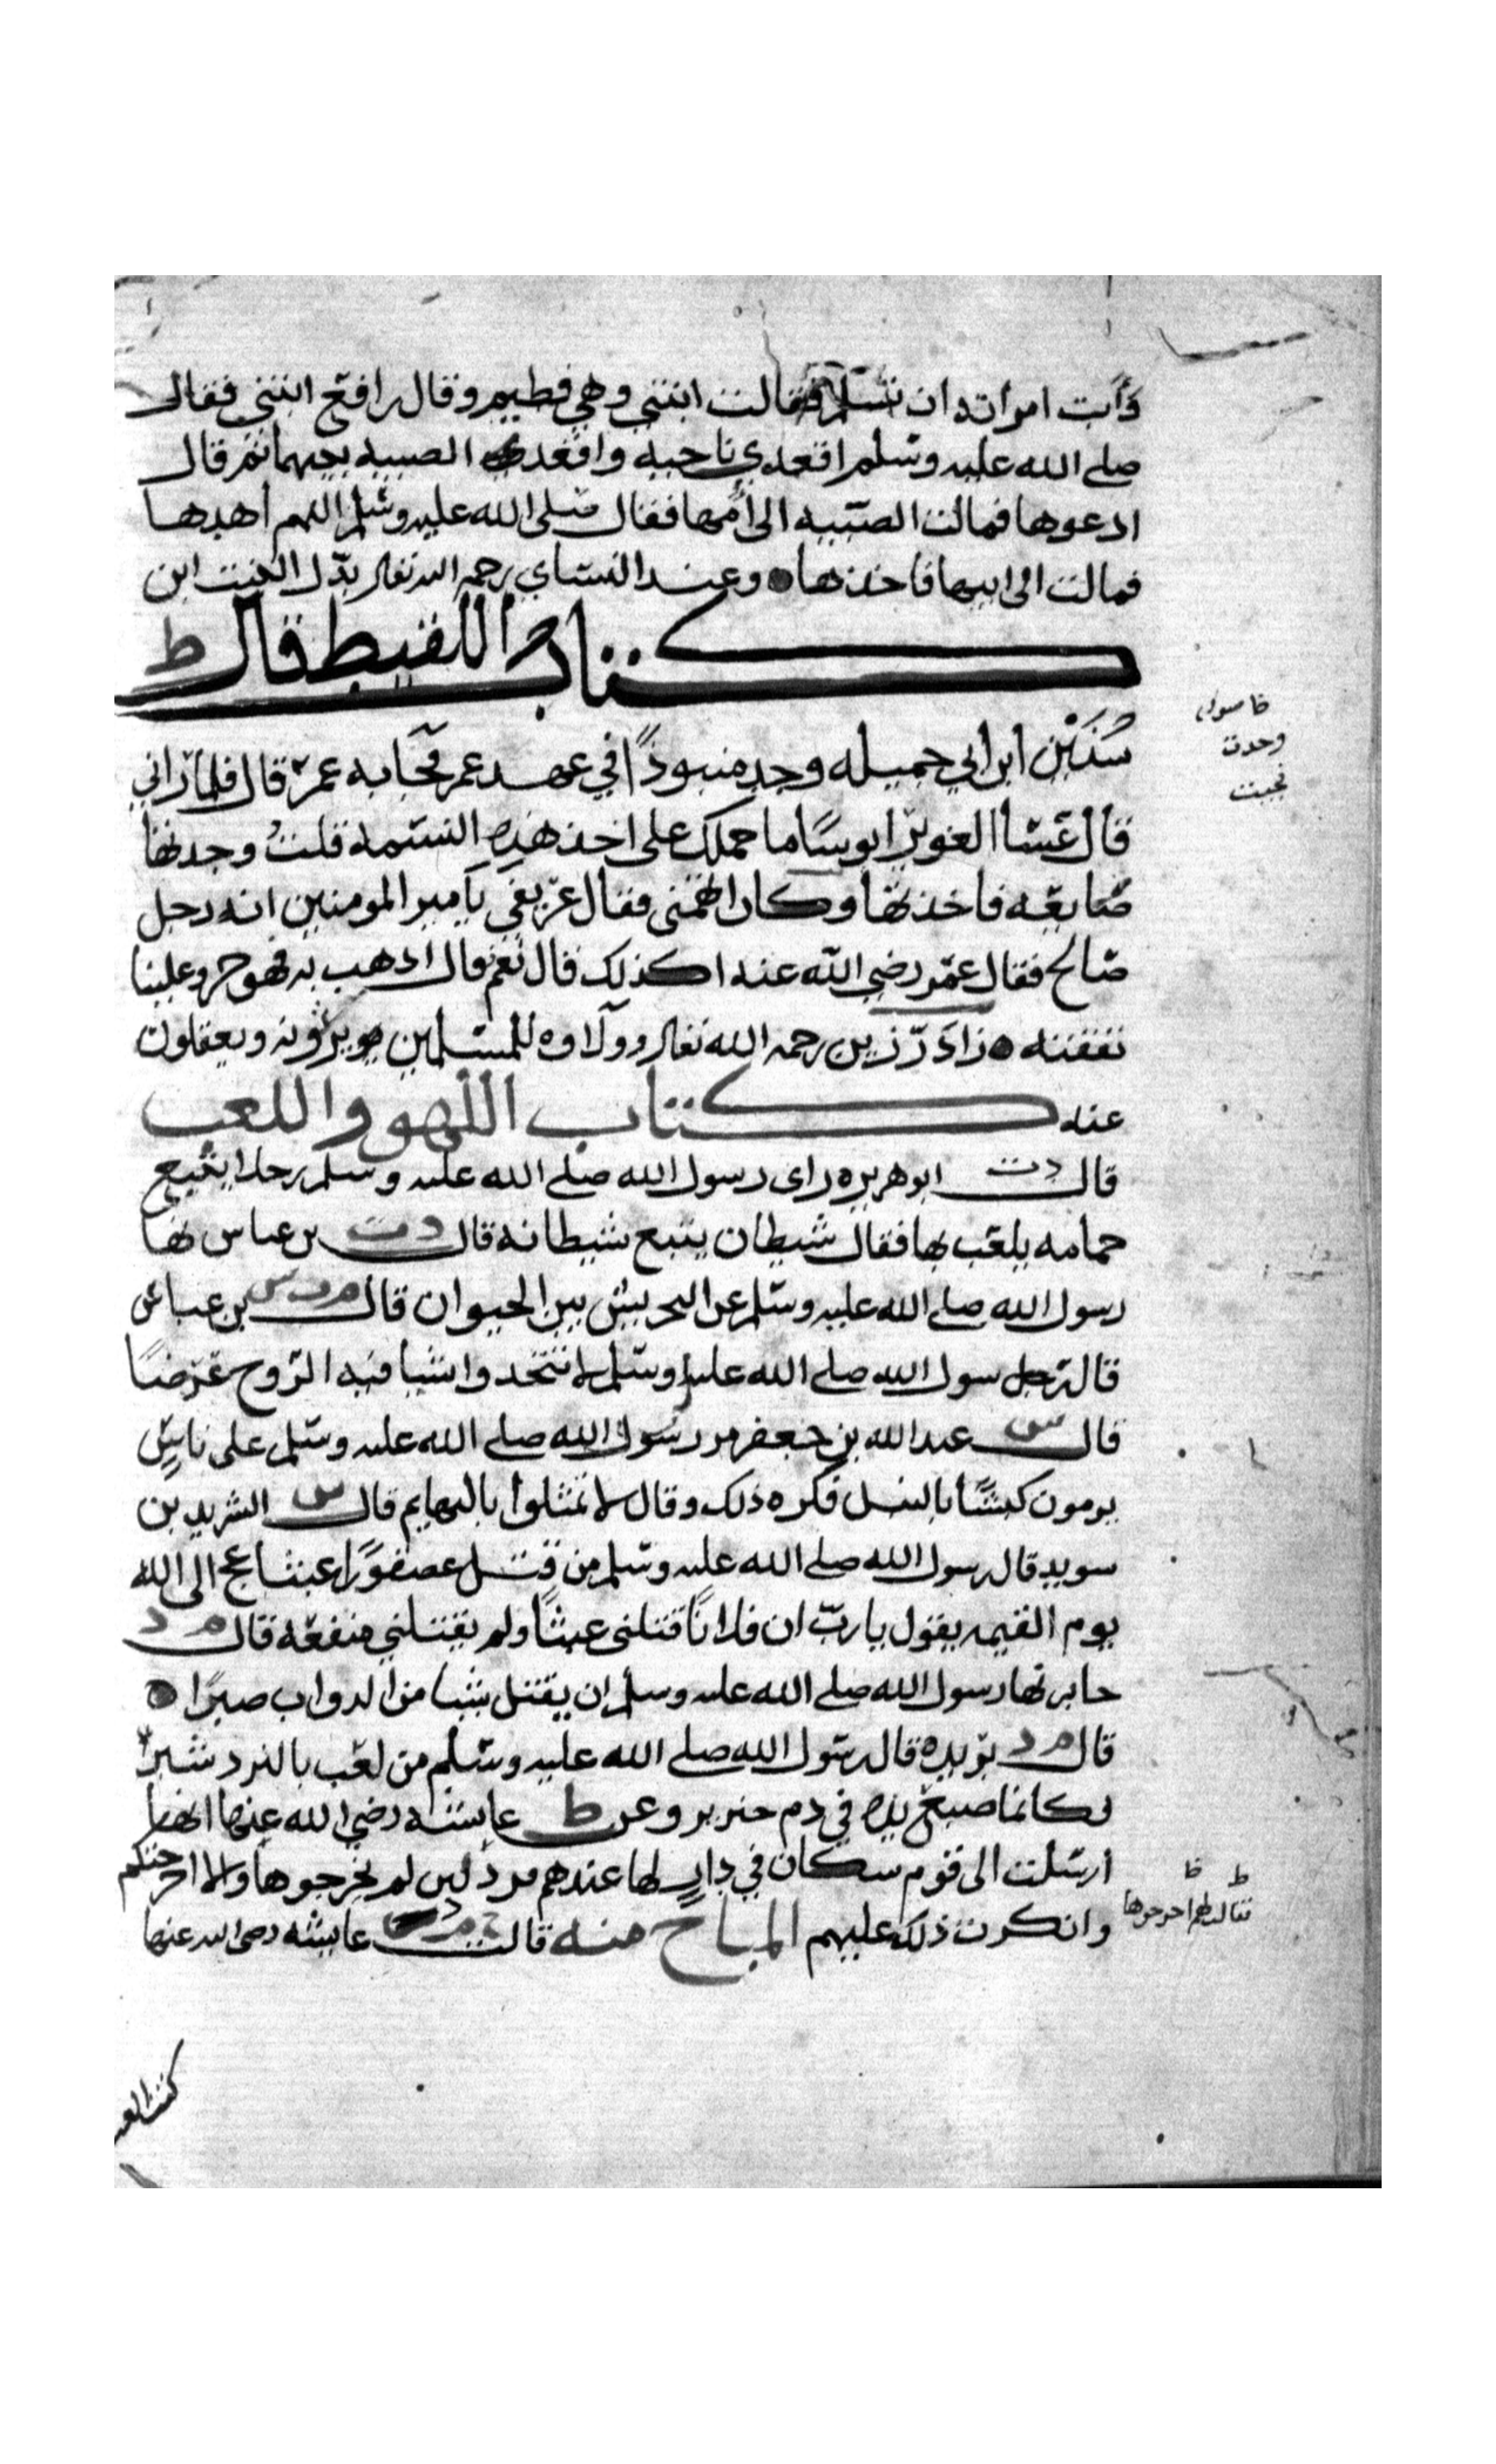 وأبت امراته ان تسلم فقالت ابنتي وهي فطيم وقال رافع ابنتي فقال
صلى الله عليه وسلم اقعدي ناحيه واقعدي الصبيه بينهما ثم قال
ادعوها فمالت الصبيه الى أمها فقال صلى الله عليه وسلم اللهم اهدها
فمالت الى ابيها فاخذها وعند النساي رحمه الله تعالى بدل البنت ابن
كتاب اللقيط قال ط
سُنَيْن ابن ابي جميله وجد منبوذًا في عهد عمر فجا به عمر قال فلما راني
قال عسا الغوير ابوسًا ما حملك على اخذ هذه النسمه قلت وجدتها
ضايعه فاخذتها وكان اتهمني فقال عريفي يا مير المومنين انه رجل
صالح فقال عمر رضي الله عنه اكذلك قال نعم قال اذهب به فهو حر وعلينا
نفقته زاد رزين رحمه الله تعالى وولاوه للمسلمين يرثونه ويعقلون
عنه كتاب اللهو واللعب
قال دت ابو هريره راى رسول الله صلى الله عليه وسلم رجلا يتبع
حمامه يلعب بها فقال شيطان يتبع شيطانه قال دت بن عباس نها
رسول الله صلى الله عليه وسلم عن التحريش بين الحيوان قال م ت س بن عباس
قال رسول الله صلى الله عليه وسلم لا تتخذوا شيا فيه الروح غرضًا
قال س عبد الله بن جعفر مر رسول الله صلى الله عليه وسلم على ناس
يرمون كبشًا بالنبل فكره ذلك وقال لا تمثلوا بالبهايم قال س الشريد بن
سويد قال رسول الله صلى الله عليه وسلم من قتل عصفورًا عبثا عج الى الله
يوم القيمه يقول يا رب ان فلانًا قتلني عبثًا ولم يقتلني منفعه قال م د
جابر نها رسول الله صلى الله عليه وسلم ان يقتل شيا من الدواب صبرًا
قال م د بريده قال رسول الله صلى الله عليه وسلم من لعب بالنرد شير
فكانما صبغ يده في دم خنزير وعن ط عايشه رضي الله عنها انها
ارسلت الى قوم سكان في دار لها عندهم نرد لين لم تخرجوها والا اخرجتكم
وانكرت ذلك عليهم المباح منه قالت عايشه رضى الله عنها
وجدت
فقالت لهم اخرجوها